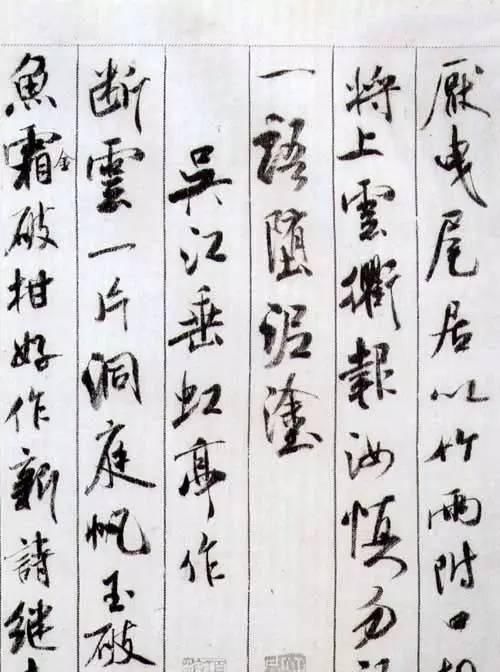 厭曳尾居以竹兩附口
將上雲衢報汝慎勿
一語墮泥塗
吳江垂虹亭作
断雲一片洞庭帆玉破
魚霜金破柑好作新詩繼